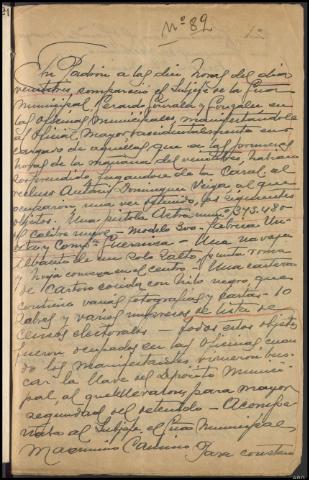 Nº 89
En Padrón a las diez horas del día
veintitres, compareció el Subjefe de la Guardia
Municipal, Gerardo González, en
las Oficinas Municipales, manifestándole
al Oficial Mayor accidentalmente en-
cargado de aquellas, que en las primeras
horas de la mañana del veintitres, habían
sorprendido fugándose de la Carcel, al
recluso Antonio Dominguez Veiga, al que
ocuparon una vez detenido, los siguientes
objetos. Una pistola Astra num.º 373.480
el calibre nueve - modelo 300 - fabrica Un-
ceta y Compª Guernica - Una navaja
Albacete de un solo salto, punta roma
y hoja convexa en el centro - Una cartera
de Carton cosida con hilo negro, que
contiene varias fotografias y cartas - 10
y varios impresos de lista de
Censos electorales - todos estos objetos
fueron ocupados en las Oficinas cuan-
do los manifestantes vinieron bus-
car la llave del Depósito Munici-
pal, al que llevaron, para mayor
seguridad del detenido - Acompa-
ñaba al Subjefe, el Guardia Municipal,
Maximino Camino. Para constan